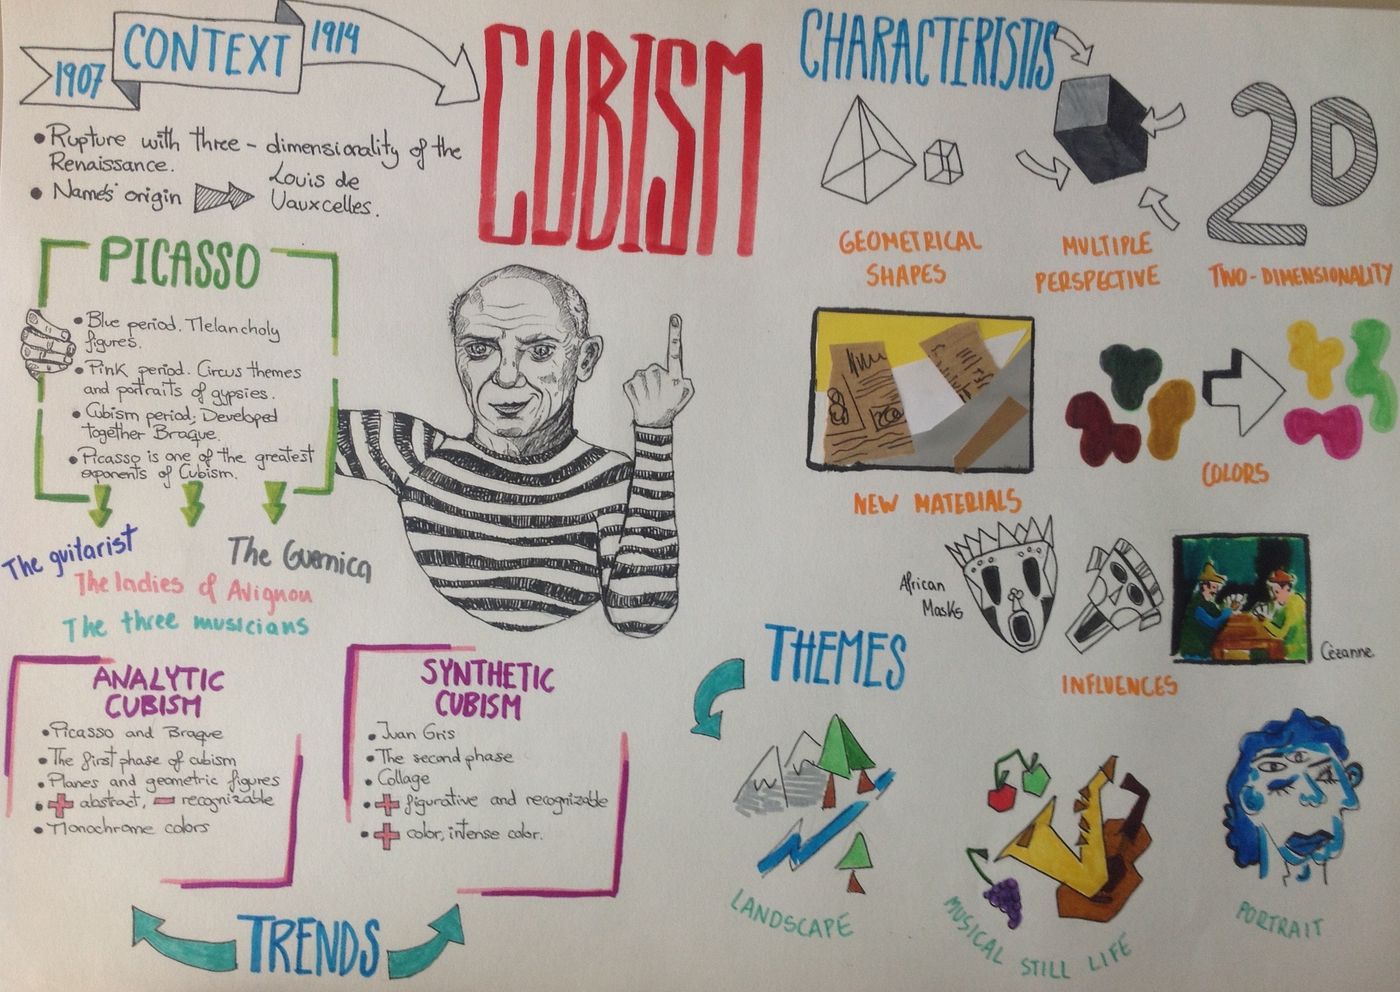 1907
CONTEXT
1914
• Rupture with three-dimensionality of the
Renaissance.
• Names' origin
Louis de
Vauxcelles.
CUBISM
PICASSO
• Blue period. Melancholy
figures.
• Pink period. Circus themes
and portraits of gypsies.
• Cubism period; Developed
together Braque.
• Picasso is one of the greatest
exponents of Cubism.
The guitarist
The Guernica
The ladies of Avignon
The three musicians
ANALYTIC
CUBISM
• Picasso and Braque
• The first phase of cubism
• Planes and geometric figures
• + abstract, - recognizable
• Monochrome colors
SYNTHETIC
CUBISM
• Juan Gris
• The second phase
• Collage
• + figurative and recognizable
• + color, intense color.
TRENDS
CHARACTERISTIS
GEOMETRICAL
SHAPES
MULTIPLE
PERSPECTIVE
2D
TWO-DIMENSIONALITY
NEW MATERIALS
COLORS
African
Masks
Cèzanne
INFLUENCES
THEMES
LANDSCAPE
MUSICAL STILL LIFE
PORTRAIT